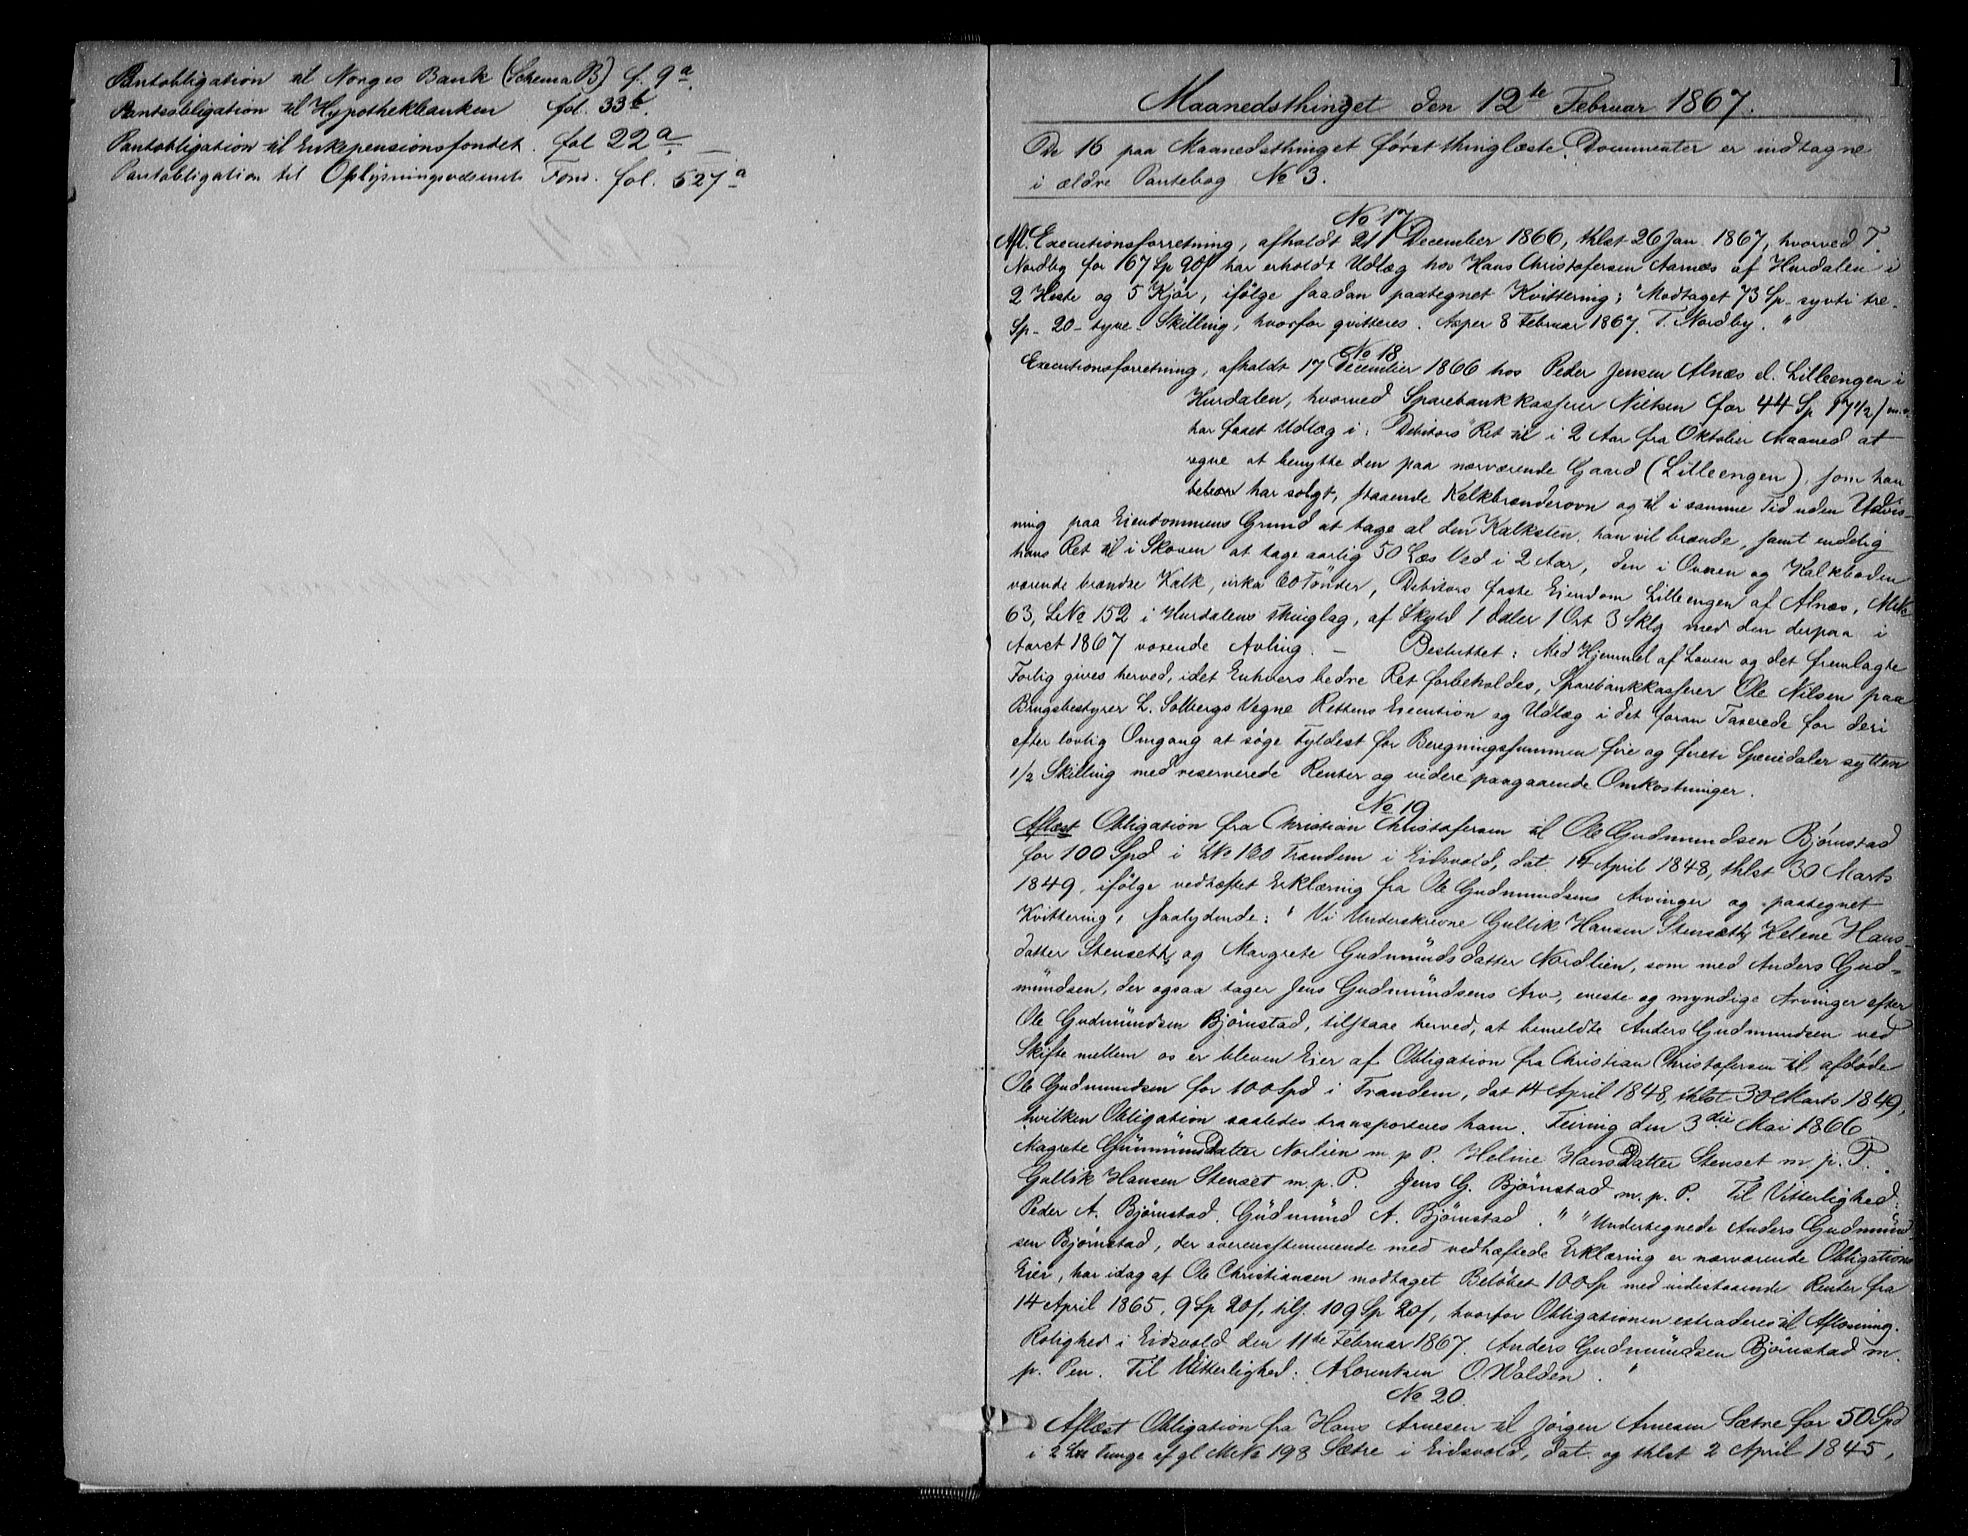 Pantobligation til Norges Bank (Schema B) f. 9a.
Panteobligation til Hypothekbanken fol. 33b.
Pantobligation til Enkepensionsfondet. fol 22a. —
Pantobligation til Oplysningsvæsenets Fond. fol. 527a
1
Maanedsthinget den 12te Februar 1867.
De 16 paa Maanedsthinget først thinglæste Documenter er indtagne
i ældre Pantebog No 3.
No 17.
Afl. Executionsforretning, afholdt 21 December 1866, thlst 26 Jan. 1867, hvorved T.
Nordby for 167 Sp 90 s har erholdt Udlæg hos Hans Christofersen Aarnæs af Hurdalen i
2 Heste og 5 Kjør, ifølge saadan paategnet Kvittering; "Modtaget 73 Sp - syvti tre -
Sp - 20 - tyve - Skilling, hvorfor qvitteres. Asper 8 Februar 1867. T. Nordby. "
No 18
Executionsforretning, afholdt 17 December 1866 hos Peder Jensen Alnæs el. Lilleengen i
Hurdalen, hvorved Sparebankkasserer Nielsen for 44 Sp 17 1/2 s m.v.
har faaet Udlæg i: Debitors Ret til i 2 Aar fra Oktober Maaned at
regne at benytte den paa nærværende Gaard (Lilleengen), som han
har solgt, staaende Kalkbrænderovn og til i samme Tid uden Udvis-
ning paa Eiendommens Grund at tage al den Kalksten, han vil brænde, samt endelig
hans Ret til i Skoven at tage aarlig 50 Læs Ved i 2 Aar, den i Ovnen og Kalkboden
værende brændte Kalk, cirka 60 Tønder, Debitors faste Eiendom Lilleengen af Alnæs, M No
63, L No 152 i Hurdalens thinglag, af Skyld 1 Daler 1 Ort 3 Sklg med den derpaa i
Aaret 1867 voxende Avling. — Besluttet: Med Hjemmel af Loven og det fremlagte
Forlig gives herved, idet Enhvers bedre Ret forbeholdes, Sparebankkasserer Ole Nilsen paa
Brugsbestyrer L. Solbergs Vegne Rettens Execution og Udlæg i det foran Taxerede for deri
efter lovlig Omgang at søge Fyldest for Beregningssummen fire og føreti Speciedaler sytten
1/2 Skilling med reserverede Renter og videre paagaaende Omkostninger.
No 19
Aflæst Obligation fra Christian Christofersen til Ole Gudmundsen Bjørnstad
for 100 Spd i L No 120 Trandem i Eidsvold, dat. 14 April 1848, thlst 30 Marts
1849, ifølge vedhæftet Erklæring fra Ole Gudmundsens Arvinger og paategnet
Kvittering, saalydende: "Vi Underskrevne Gullik Hansen Stenseth, Helene Hans-
datter Stenseth og Margrete Gudmundsdatter Nordlien, som med Anders Gud-
mundsen, der ogsaa tager Jens Gudmundsens Arv, eneste og myndige Arvinger efter
Ole Gudmundsen Bjørnstad, tilstaae herved, at bemeldte Anders Gudmundsen ved
Skifte mellem os er bleven Eier af Obligation fra Christian Christofersen til afdøde
Ole Gudmundsen for 100 Spd i Trandem, dat 14 April 1848, thlst 30 Marts 1849,
hvilken Obligation saaledes transporteres ham. Feiring den 3die Mai 1866
Magrete GünmünsDatter Norlien m. p P. Heline HansDatter Stenset m. p. P.
Gullik Hansen Stenset m. p. P. Jens G. Bjørnstad m. p. P. Til Vitterlighed:
Peder A. Bjørnstad. Güdmünd A. Bjørnstad. " "Undertegnede Anders Gudmund-
sen Bjørnstad, der overensstemmende med vedhæftede Erklæring er nærværende Obligations
Eier, har idag af Ole Christiansen modtaget Beløbet 100 Sp med indestaaende Renter fra
14 April 1865, 9 Sp 20 s, tils. 109 Sp 20 s, hvorfor Obligationen extraderes til Aflæsning.
Rolighed i Eidsvold den 11te Februar 1867. Anders Gudmundsen Bjørnstad m.
p. Pen. Til Vitterlighed: A Lorentsen O. Wolden. "
No 20.
Aflæst Obligation fra Hans Arnesen til Jørgen Arnesen Sætre for 50 Spd
i 2 Lnr Tunge af gl M No 198 Sætre i Eidsvold, dat. og thlst 2 April 1845,